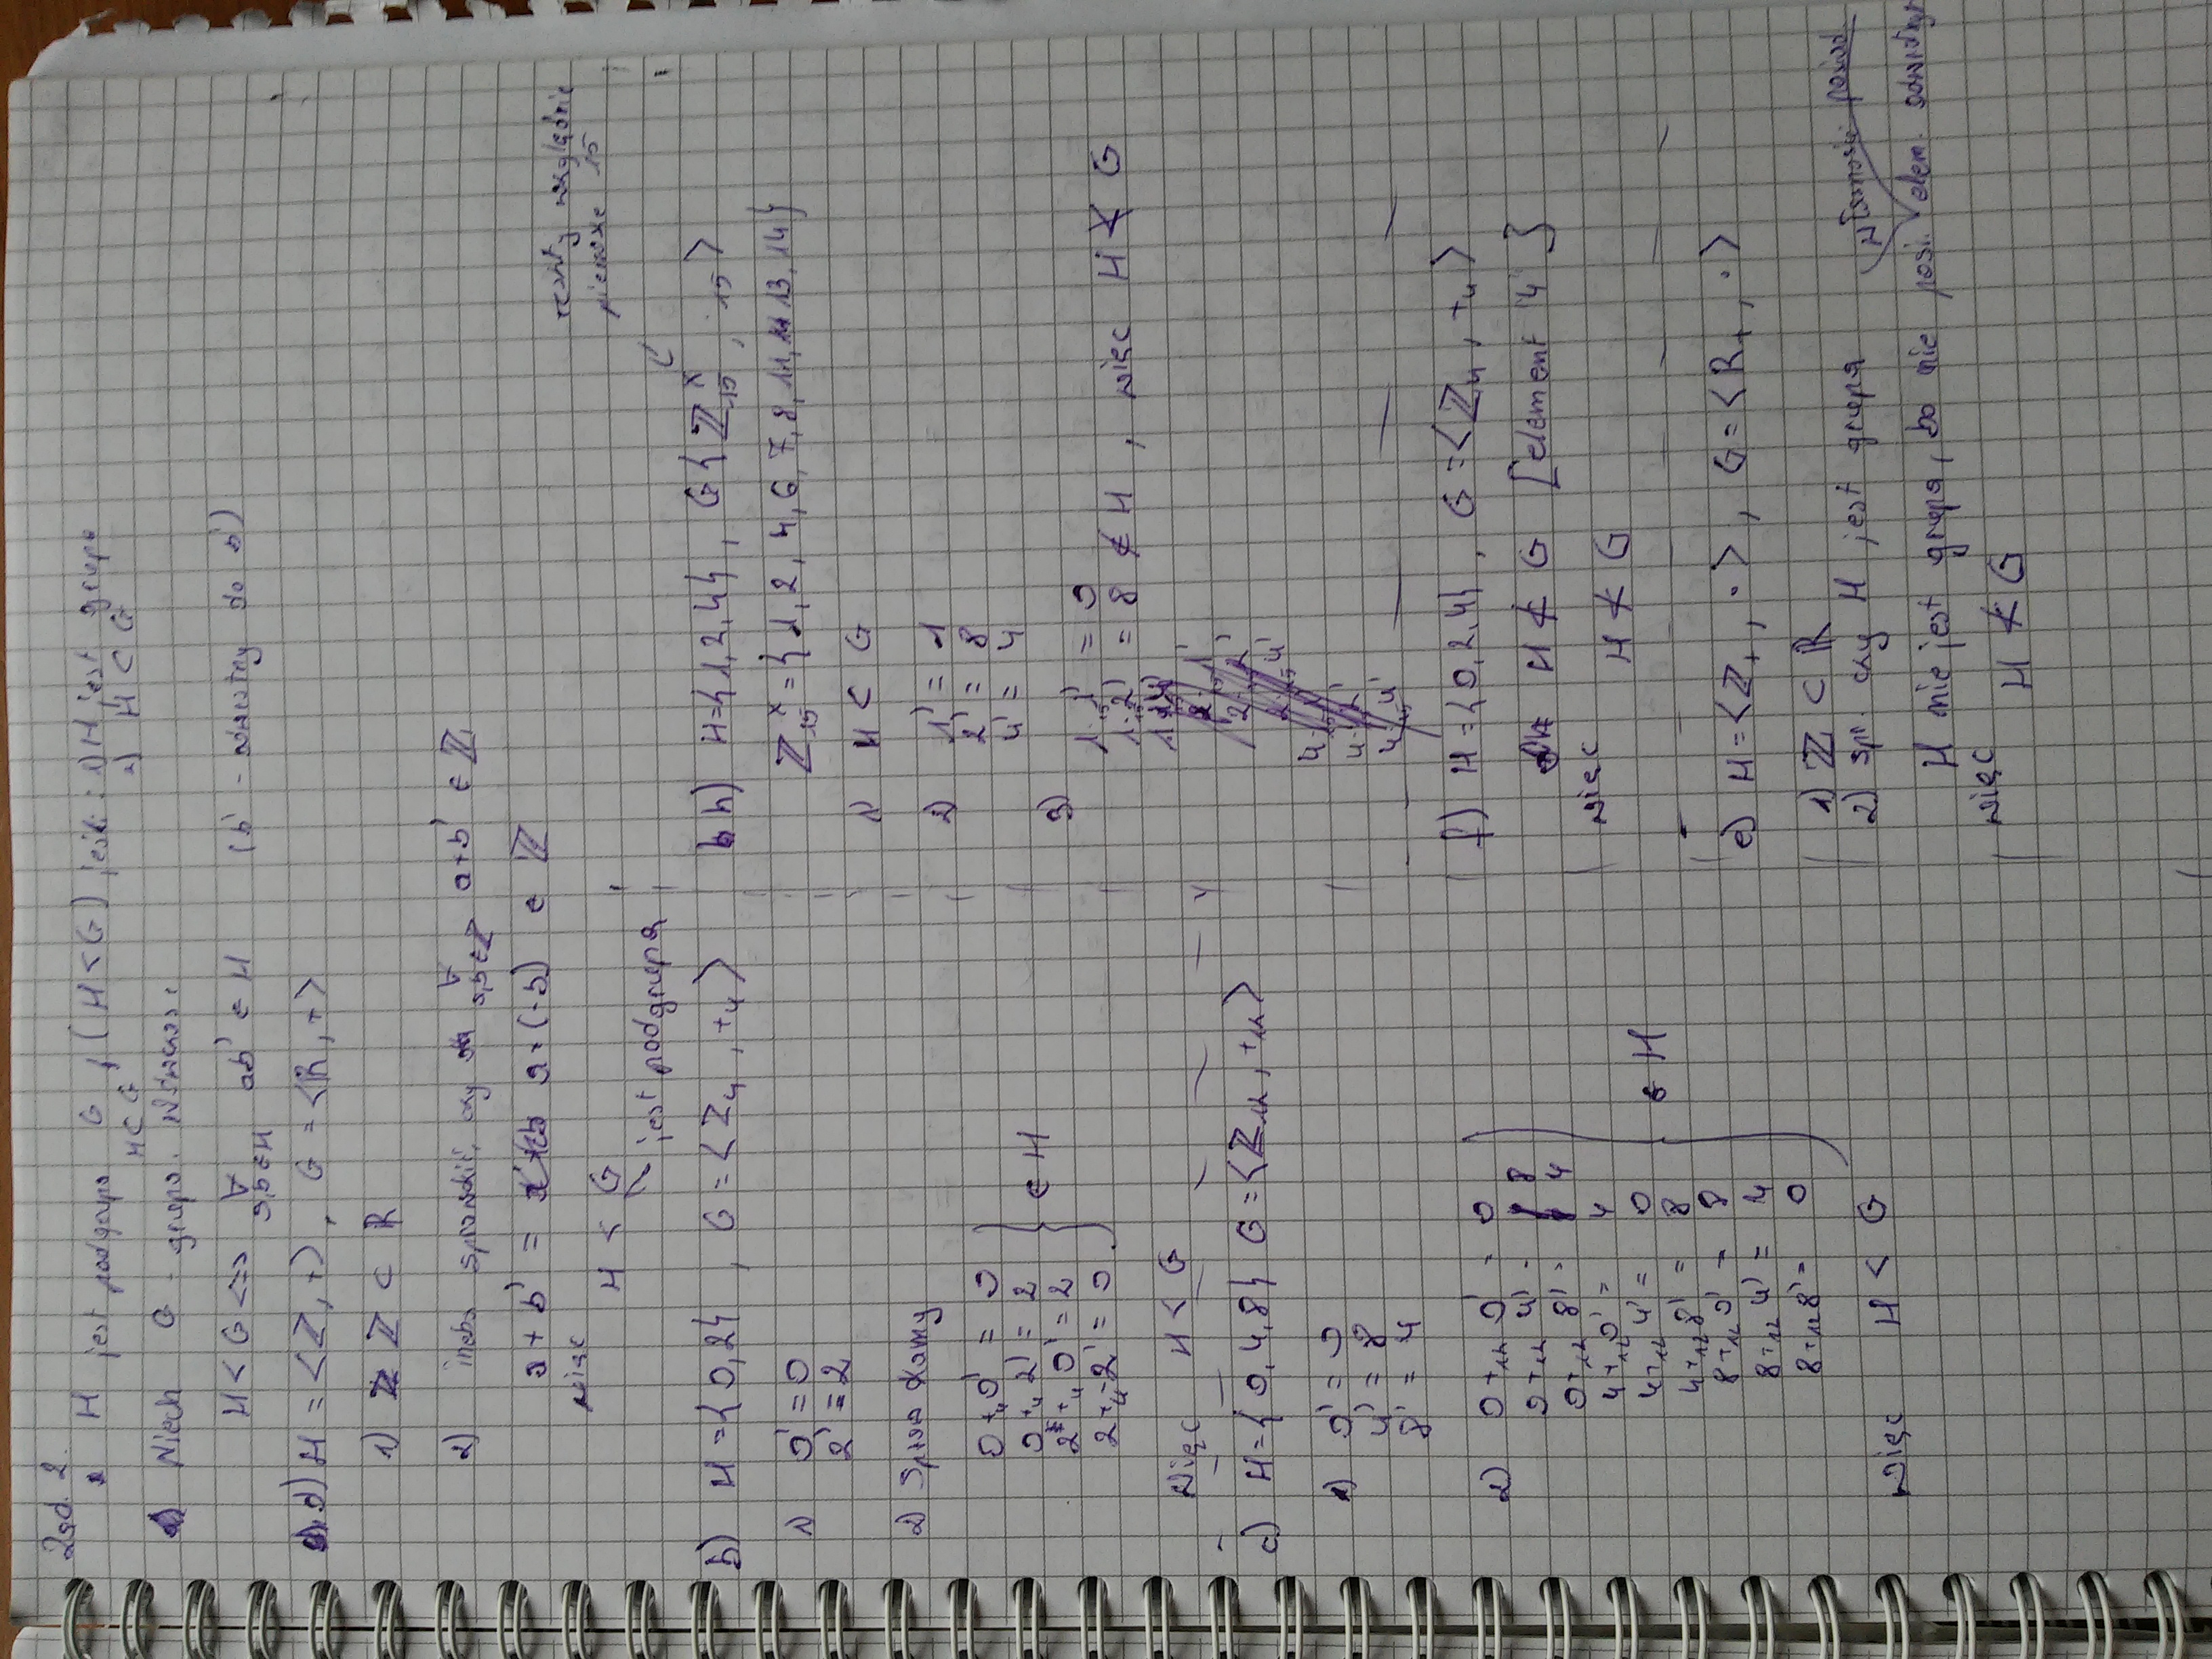 Zad. 2.
H jest podgrupą G, (H < G) jeśli: 1) H jest grupą
H ⊂ G 2) H ⊂ G
Niech G - grupa. Wówczas:
H < G <=> ∀ ab' ∈ H (b' - odwrotny do b)
a,b ∈ H
d) H = <ℤ, +>, G = <ℝ, +>
1) ℤ ⊂ ℝ
2) trzeba sprawdzić, czy ∀ a+b' ∈ ℤ
a,b ∈ ℤ
a + b' = a + (-b) ∈ ℤ
więc
H < G
jest podgrupą
b) H = {0,2}, G = <ℤ₄, +₄>
1) 0' = 0
2' = 2
2) Sprawdzamy
0 +₄ 0' = 0
0 +₄ 2' = 2
2 +₄ 0' = 2
2 +₄ 2' = 0
∈ H
Więc H < G
c) H = {0,4,8} G = <ℤ₁₂, +₁₂>
1) 0' = 0
4' = 8
8' = 4
2) 0 +₁₂ 0' = 0
0 +₁₂ 4' = 8
0 +₁₂ 8' = 4
4 +₁₂ 0' = 4
4 +₁₂ 4' = 0
4 +₁₂ 8' = 8
8 +₁₂ 0' = 8
8 +₁₂ 4' = 4
8 +₁₂ 8' = 0
∈ H
więc H < G
reszty względnie
pierwsze 15
h) H={1,2,4}, G{ℤ₁₅ˣ, ·₁₅>
ℤ₁₅ˣ = {1, 2, 4, 6, 7, 8, 11, 13, 14}
1) H ⊂ G
2) 1' = 1
2' = 8
4' = 4
3)
1 ·₁₅ 1' = 0
1 ·₁₅ 2' = 8 ∉ H, więc H ≮ G
2 ·₁₅ 1'
2 ·₁₅ 2'
2 ·₁₅ 4'
4 ·₁₅ 1'
4 ·₁₅ 2'
4 ·₁₅ 4'
f) H = {0,2,4}, G = <ℤ₄, +₄>
H ⊄ G [element '4']
więc
H ≮ G
e) H = <ℤ₊, ·>, G = <ℝ₊, ·>
1) ℤ ⊂ ℝ
2) spr. czy H jest grupą
własności
H nie jest grupą, bo nie posi. elem. odwrotnych
więc
H ≮ G